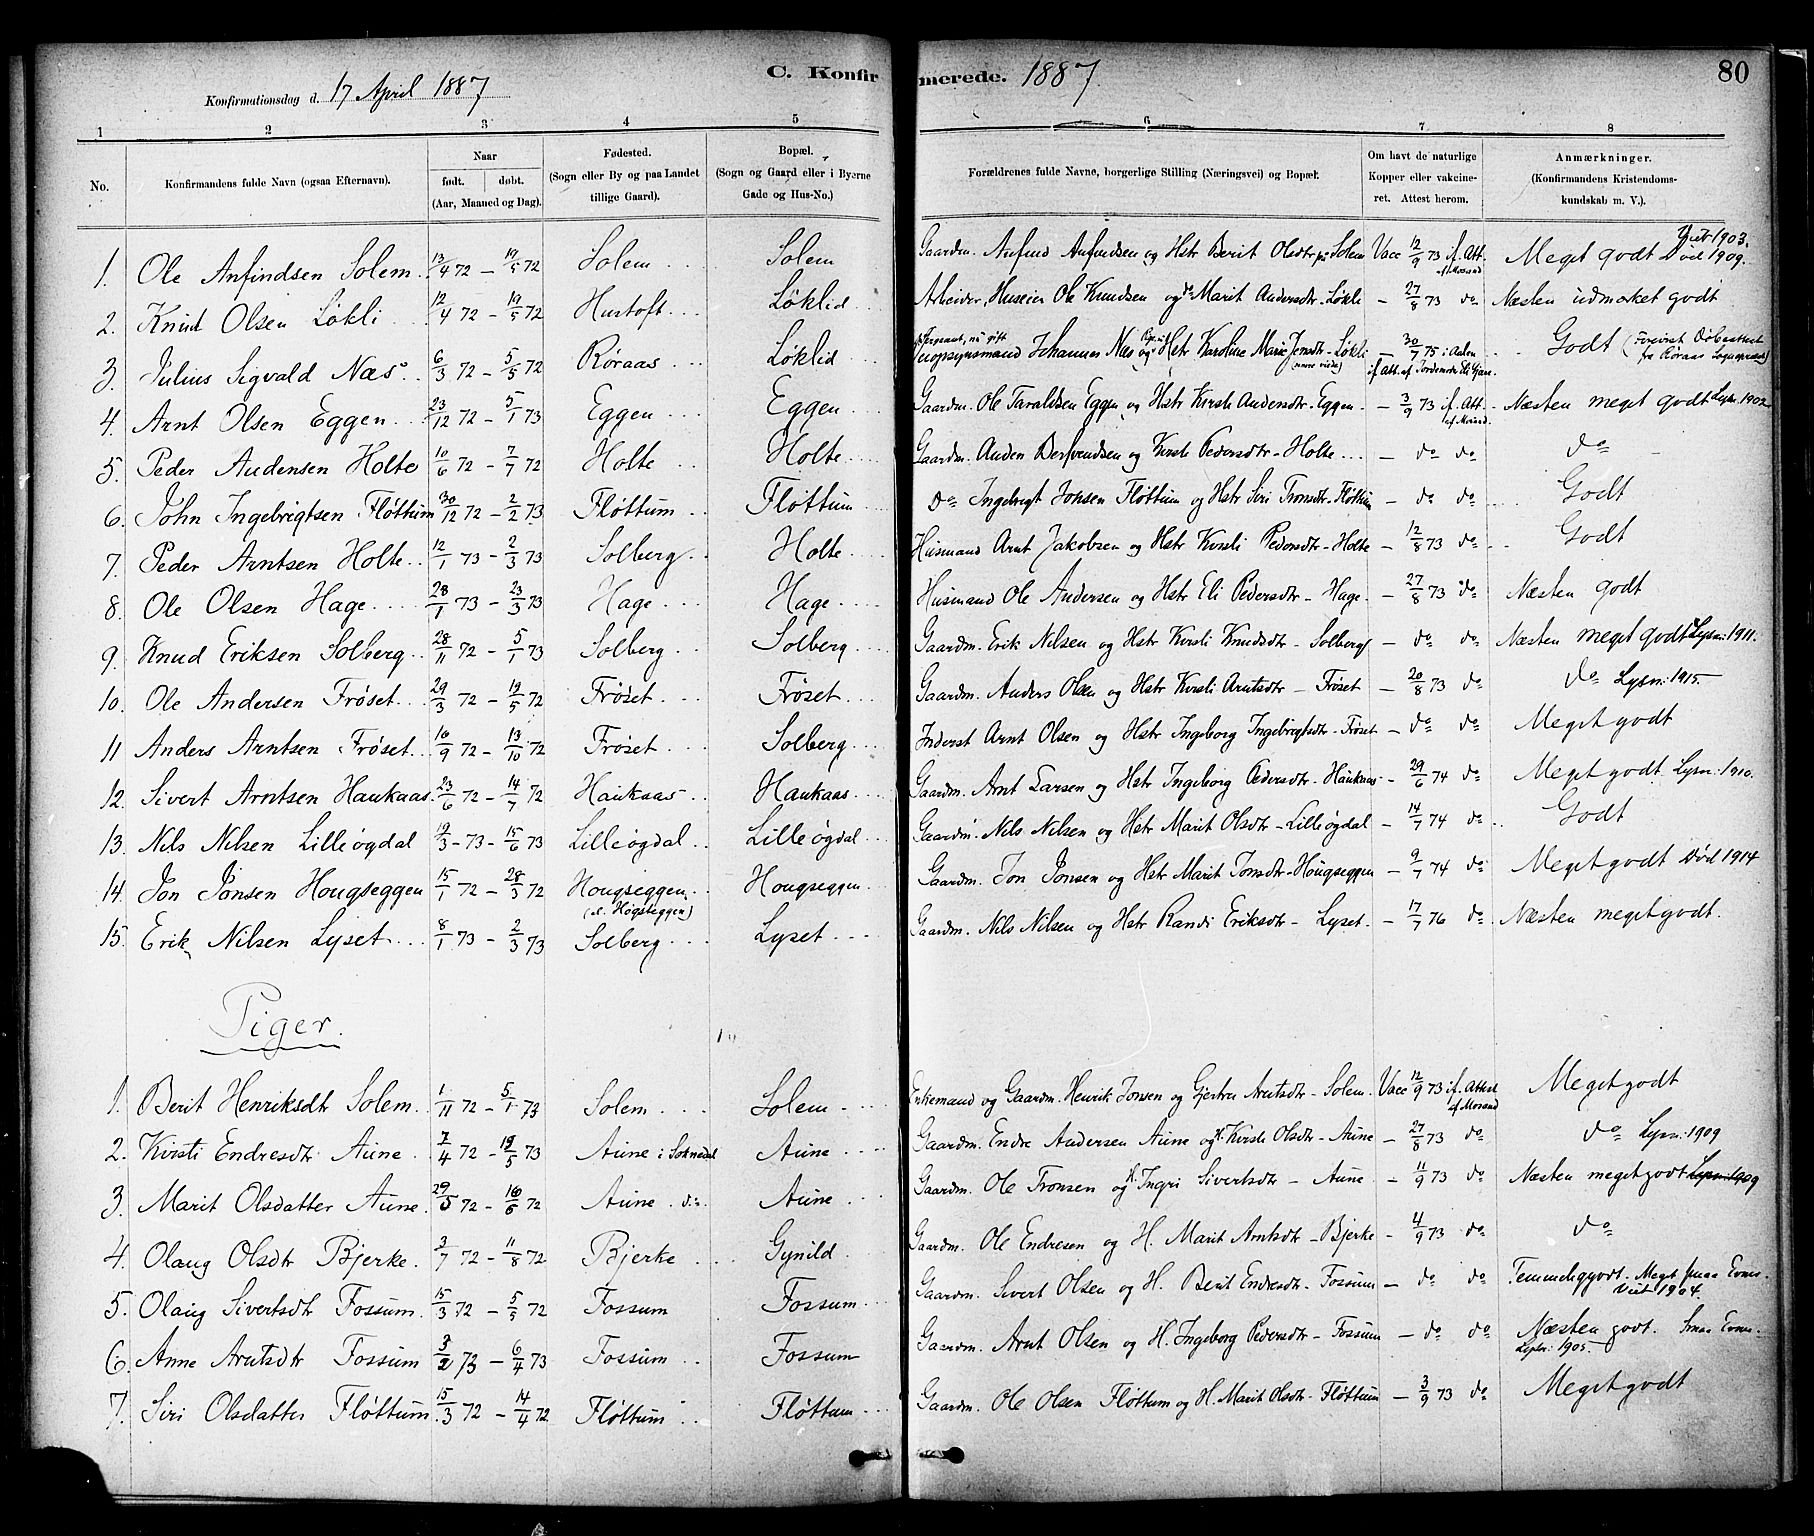 C. Konfirmerede. 1887. 80
Konfirmationsdag d. 17 April 1887
1 2 3 4 5 6 7 8
No. Konfirmandens fulde Navn (ogsaa Efternavn). Naar født. døbt. (Aar, Maaned og Dag). Fødested. (Sogn eller By og paa Landet tillige Gaard). Bopæl. (Sogn og Gaard eller i Byerne Gade og Hus-No.) Forældrenes fulde Navne, borgerlige Stilling (Næringsvei) og Bopæl. Om havt de naturlige Kopper eller vakcineret. Attest herom. Anmærkninger. (Konfirmandens Kristendomskundskab m. V.)
1. Ole Anfindsen Solem 13/4 72 – 19/5 72 Solem Solem Gaardm. Anfind Anfindsen og Hstr Berit Olsdtr på Solem Vacc 12/9 73 if. Att. af Morsund Meget godt Viet 1903. Død 1909.
2. Knud Olsen Løkli 12/4 72 – 19/5 72 Hustoft Løklid Arbeider, Huseier Ole Knudsen og do Marit Andersdtr – Løkli – 27/8 73 do Næsten udmærket godt
3. Julius Sigvald Næs 6/3 72 – 5/5 72 Røraas Løklid Sergeant, nu gift Opsynsmand Johannes Næs og Hstr Karoline Marie Jensdtr – Løkli – 30/7 75 i Aalen if. Att. af Godt (Forevist Døbeattest fra Røraas Sognepræst)
4. Arnt Olsen Eggen 23/12 72 – 5/1 73 Eggen Eggen Gaardm. Ole Taraldsen Eggen og Hstr Kirsti Andersdtr – Eggen – 3/9 73 if. Att. af Morsund. Næsten meget godt Lysn. 1902
5. Peder Andersen Holte 10/6 72 – 7/7 72 Holte Holte Gaardm. Anders Bersvendsen og Kirsti Pedersdtr – Holte – do do do
6. John Ingebrigtsen Fløttum 30/12 72 – 2/2 73 Fløttum Fløttum do Ingebrigt Jonsen Fløttum og Hstr Siri Tronsdtr – Fløttum – do do Godt
7. Peder Arntsen Holte 12/1 73 – 2/3 73 Solberg Holte Husmand Arnt Jakobsen og Hstr Kirsti Pedersdtr – Holte – 12/8 73 do Godt
8. Ole Olsen Hage 28/1 73 – 23/3 73 Hage Hage Husmand Ole Andersen og Hstr Eli Pedersdtr – Hage – 27/8 73 do Næsten godt
9. Knud Eriksen Solberg 28/11 72 – 5/1 73 Solberg Solberg Gaardm. Erik Nilsen og Hstr Kirsti Knudsdtr – Solberg – do do Næsten meget godt Lysn: 1911.
10. Ole Andersen Frøset 29/3 72 – 19/5 72 Frøset Frøset Gaardm. Anders Olsen og Hstr Kirsti Arntsdtr – Frøset – 20/8 73 do do Lysn: 1915.
11 Anders Arntsen Frøset 16/9 72 – 13/10 72 Frøset Solberg Inderst Arnt Olsen og Hstr Ingeborg Ingebrigtsdtr – Frøset – do do Meget godt
12. Sivert Arntsen Haukaas 23/6 72 – 14/7 72 Haukaas Haukaas Gaardm. Arnt Larsen og Hstr Ingeborg Pedersdtr – Haukaas – 29/6 74 do Meget godt Lysn: 1910.
13. Nils Nilsen Lilleøgdal 19/3 – 73 – 15/6 73 Lilleøgdal Lilleøgdal Gaardm. Nils Nilsen og Hstr Marit Olsdtr – Lilleøgdal – 14/7 74 do Godt
14. Jon Jonsen Hougseggen 15/1 72 – 28/3 72 Hougseggen (el. Høgseggen) Hougseggen Gaardm. Jon Jonsen og Hstr Marit Jonsdtr – Hougseggen – 9/7 74 do Meget godt Død 1914
15. Erik Nilsen Lyset 8/1 73 – 2/3 73 Solberg Lyset Gaardm. Nils Nilsen og Hstr Randi Eriksdtr – Lyset – 17/7 76 do Næsten meget godt.
Piger.
1. Berit Henriksdtr Solem 1/11 72 – 5/1 73 Solem Solem Enkemand og Gaardm. Henrik Jonsen og Gjertru Arntsdtr – Solem. Vacc 12/9 73 if. Attest af Morsund Meget godt
2. Kirsti Endresdtr Aune 7/4 72 – 19/5 73 Aune i Soknedal Aune Gaardm. Endre Andersen Aune og H. Kirsti Olsdtr – Aune – 27/8 73 do do Lysn: 1909
3. Marit Olsdatter Aune 29/5 72 – 16/6 72 Aune do Aune Gaardm. Ole Tronsen og H. Ingri Sivertsdtr – Aune – 11/9 73 do Næsten meget godt Lysn: 1909
4. Olaug Olsdtr Bjerke 3/7 72 – 11/8 72 Bjerke Gynild Gaardm. Ole Endresen og H. Marit Arntsdtr – Bjerke – 4/9 73 do do
5. Olaug Sivertsdtr Fossum 15/3 72 – 5/5 72 Fossum Fossum Gaardm. Sivert Olsen og H. Berit Endresdtr – Fossum – do do Temmelig godt. Meget smaa Evner. Viet 1904.
6. Anne Arntsdtr Fossum 3/2 73 – 6/4 73 Fossum Fossum Gaardm. Arnt Olsen og H. Ingeborg Pedersdtr – Fossum – do do Næsten godt. Smaa Evner. Lysn: 1905.
7. Siri Olsdatter Fløttum 15/3 72 – 14/4 72 Fløttum Fløttum Gaardm. Ole Olsen Fløttum og H. Marit Olsdtr – Fløttum – 3/9 73 do Meget godt